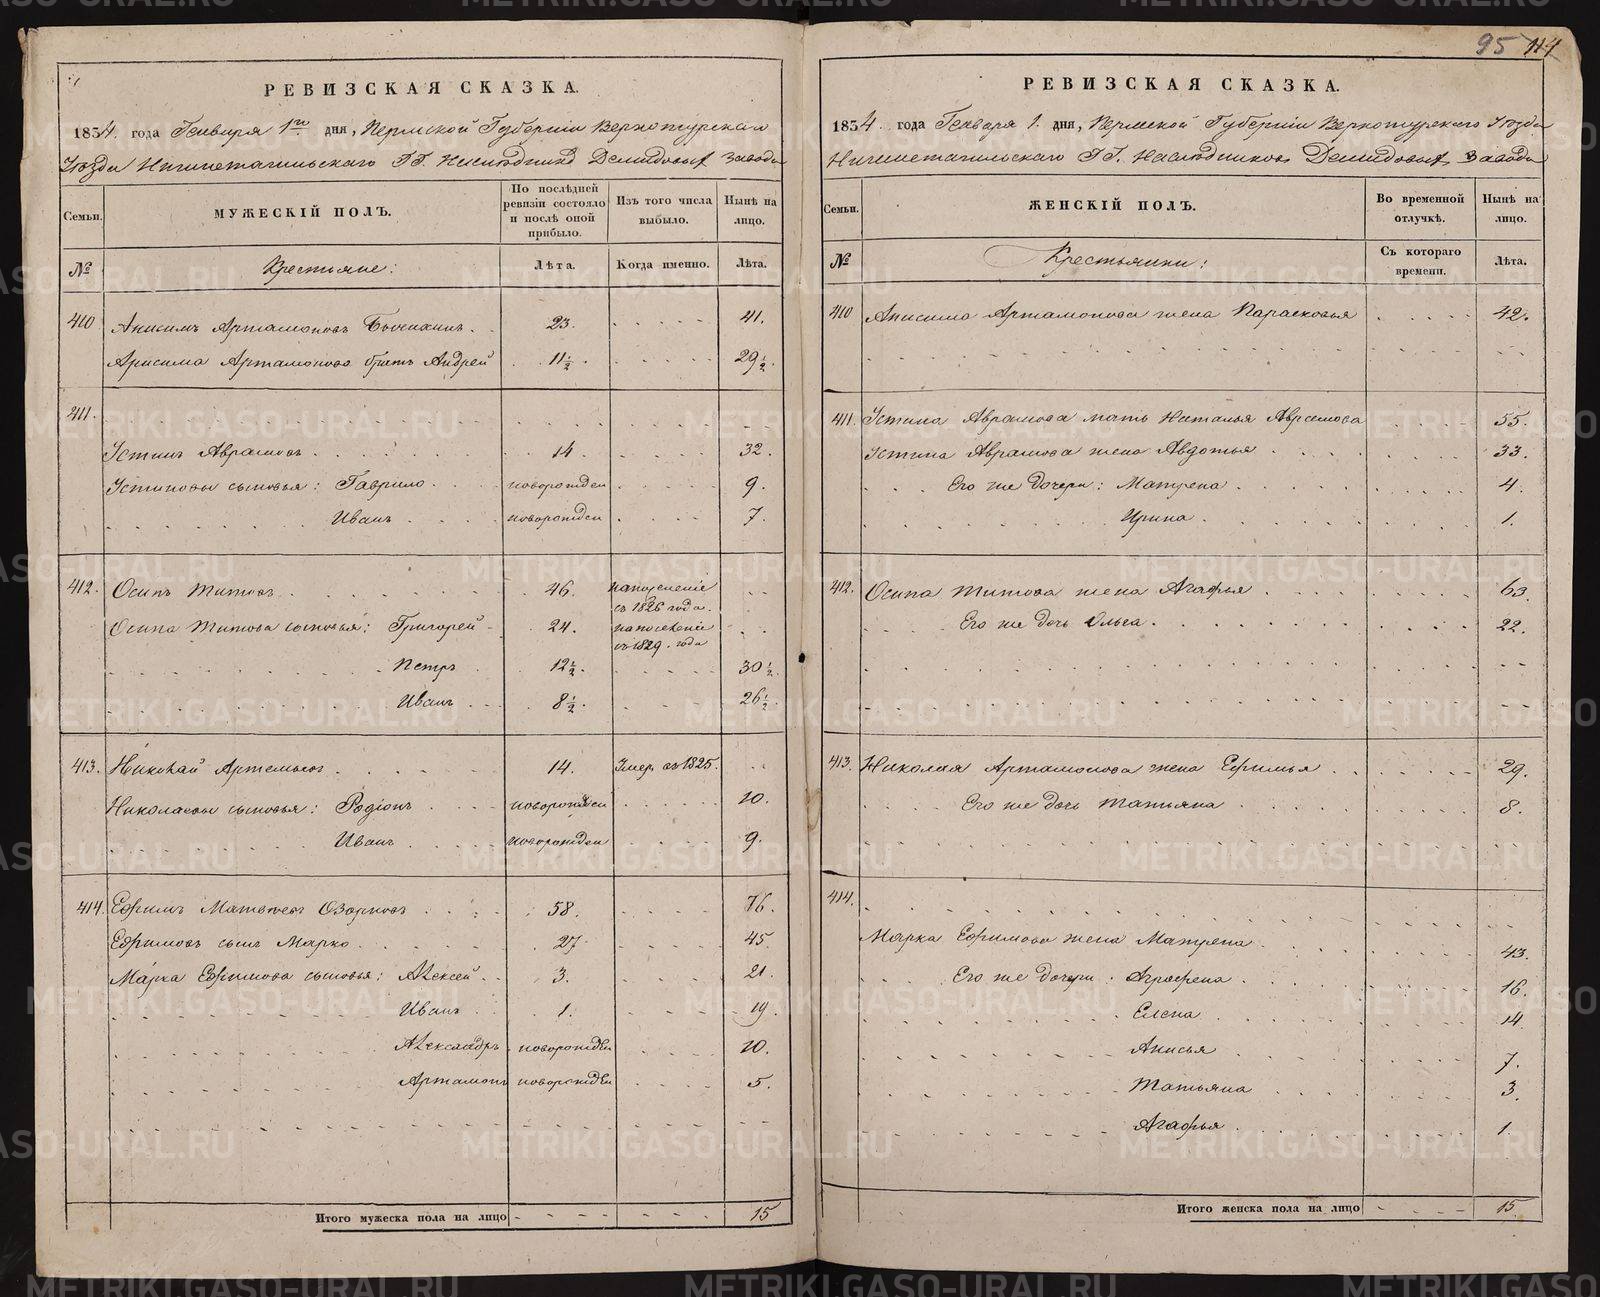 95 114
РЕВИЗСКАЯ СКАЗКА.
1834. года Генваря 1го дня, Пермской Губернии Верхотурскаго
Уѣзда Нижнетагильскаго ГГ. Наслѣдниковъ Демидовыхъ завода
Семьи.
МУЖЕСКІЙ ПОЛЪ.
По послѣдней ревизіи состояло и послѣ оной прибыло.
Изъ того числа выбыло.
Нынѣ на лицо.
№ Крестьяне: Лѣта. Когда именно. Лѣта.
410 Анисимъ Артамоновъ 23. 41.
Анисима Артамонова братъ Андрей 11½. 29½.
411.
Устинъ Аврамовъ 14 32.
Устиновы сыновья: Гаврило новорожден 9.
Иванъ новорожден 7.
412. Осипъ Титовъ 46. на поселеніе
съ 1826 года.
Осипа Титова сыновья: Григорей 24. на поселеніе
съ 1829. года
Петръ 12½. 30½.
Иванъ 8½. 26½.
413. Николай Артемьевъ 14. Умер. въ 1825.
Николаевы сыновья: Родіонъ новорожден 10.
Иванъ новорожден 9.
414. Ефимъ Матвѣевъ Озорновъ 58. 76.
Ефимовъ сынъ Марко 27 45.
Марка Ефимова сыновья: Алексей 3. 21.
Иванъ 1. 19
Александръ новорожден 10.
Артамонъ новорожден 5.
Итого мужеска пола на лицо 15
РЕВИЗСКАЯ СКАЗКА.
1834. года Генваря 1. дня, Пермской Губерніи Верхотурскаго Уѣзда
Нижнетагильскаго ГГ. Наслѣдниковъ Демидовыхъ завода
Семьи.
ЖЕНСКІЙ ПОЛЪ.
Во временной отлучкѣ.
Нынѣ на лицо.
№ Крестьянки: Съ котораго времени. Лѣта.
410 Анисима Артамонова жена Парасковья 42.
411. Устина Аврамова мать Наталья 55.
Устина Аврамова жена Авдотья 33.
Его же дочери: Матрена 4.
Ирина 1.
412. Осипа Титова жена Агафья 63.
Его же дочь Ольга 22.
413. Николая Артамонова жена Ефимья 29.
Его же дочь Татьяна 8.
414.
Марка Ефимова жена Матрена 43.
Его же дочери: Аграфена 16.
Елена 14
Анисья 7.
Татьяна 3.
Агафья 1.
Итого женска пола на лицо 15.
METRIKI.GASO-URAL.RU